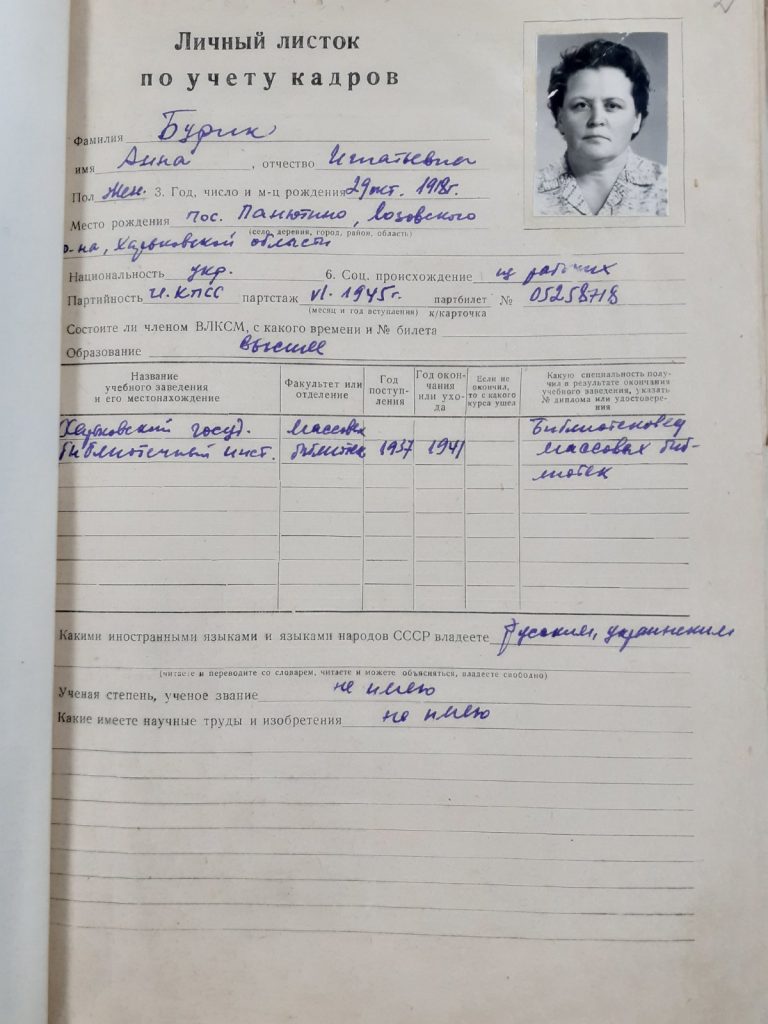 Личный листок
по учету кадров
Фамилия Бурик
имя Анна, отчество Игнатьевна
Пол жен. 3. Год, число и м-ц рождения 29 окт. 1918г.
Место рождения пос. Панютино, Лозовского
(село, деревня, город, район, область)
р-на, Харьковской области
Национальность укр. 6. Соц. происхождение из рабочих
Партийность чл. КПСС партстаж VI. 1945г. партбилет № 05258718
(месяц и год вступления) к/карточка
Состоите ли членом ВЛКСМ, с какого времени и № билета
Образование высшее
Название учебного заведения и его местонахождение
Факультет или отделение
Год поступления
Год окончания или ухода
Если не окончил, то с какого курса ушел
Какую специальность получил в результате окончания учебного заведения, указать № диплома или удостоверения
Харьковский госуд. массовых Библиотековед
библиотечный инст. библиотек 1937 1941 массовых биб-
лиотек
Какими иностранными языками и языками народов СССР владеете русским, украинским
(читаете и переводите со словарем, читаете и можете объясняться, владеете свободно)
Ученая степень, ученое звание не имею
Какие имеете научные труды и изобретения не имею